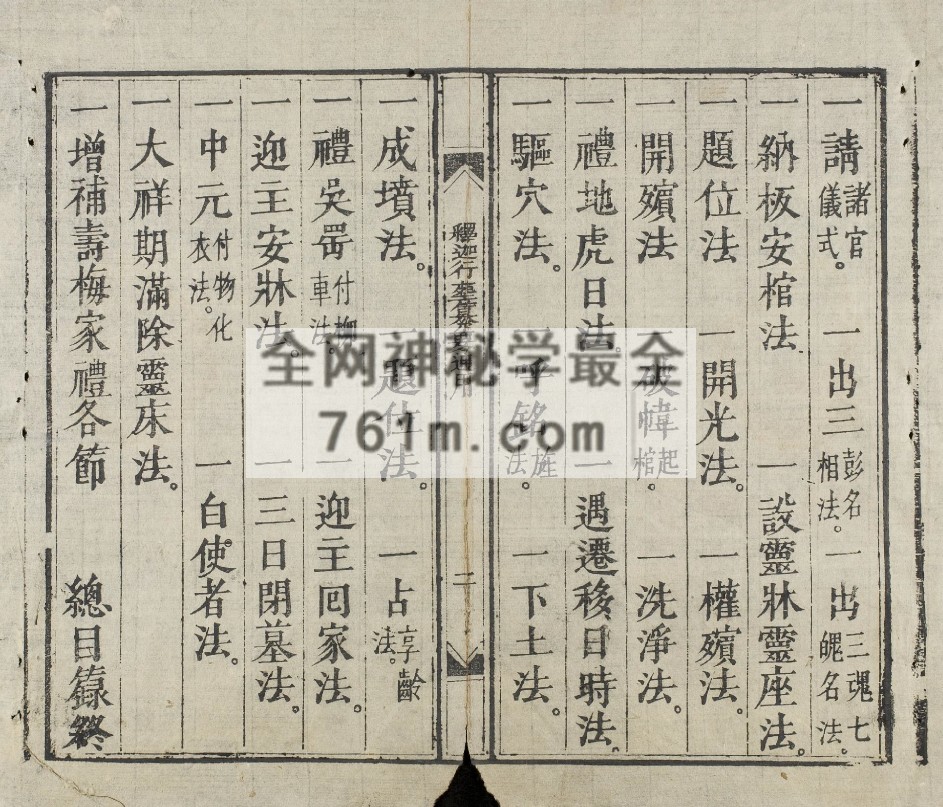 一請諸官儀式。一出三彭名相法。一出三魂七魄名法。
一納板安棺法 一設靈牀靈座法。
一題位法 一開光法。一權殯法。
一開殯法 一破幃起棺。一洗淨法。
一禮地虎日法。一遇遷移日時法。
一驅穴法。一乎銘旌法。一下土法。
二
一成墳法。一題仕法。一占享齡法。
一禮吳 付 車法。一迎主回家法。
一迎主安牀法。一三日閉墓法。
一中元付物化衣法。一白使者法。
一大祥期滿除靈床法。
一增補壽梅家禮各節 總目錄終
全网神秘学最全
761m.com